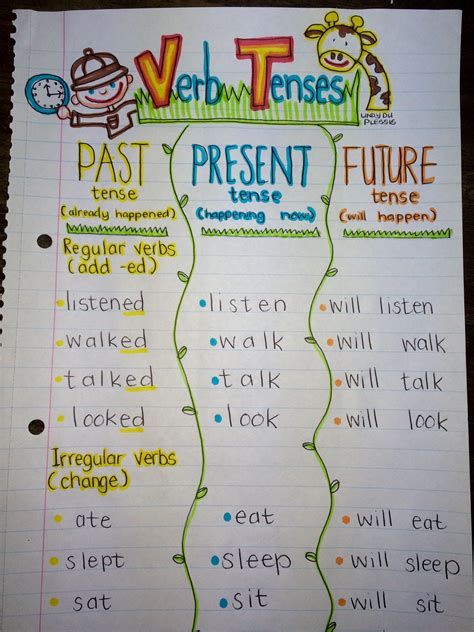 Verb Tenses
LINDY DU
PLESSIS
PAST PRESENT FUTURE
tense tense tense
(already happened) (happening now) (will happen)
Regular verbs
(add -ed)
listened listen will listen
walked walk will walk
talked talk will talk
looked look will look
Irregular verbs
(change)
ate eat will eat
slept sleep will sleep
sat sit will sit